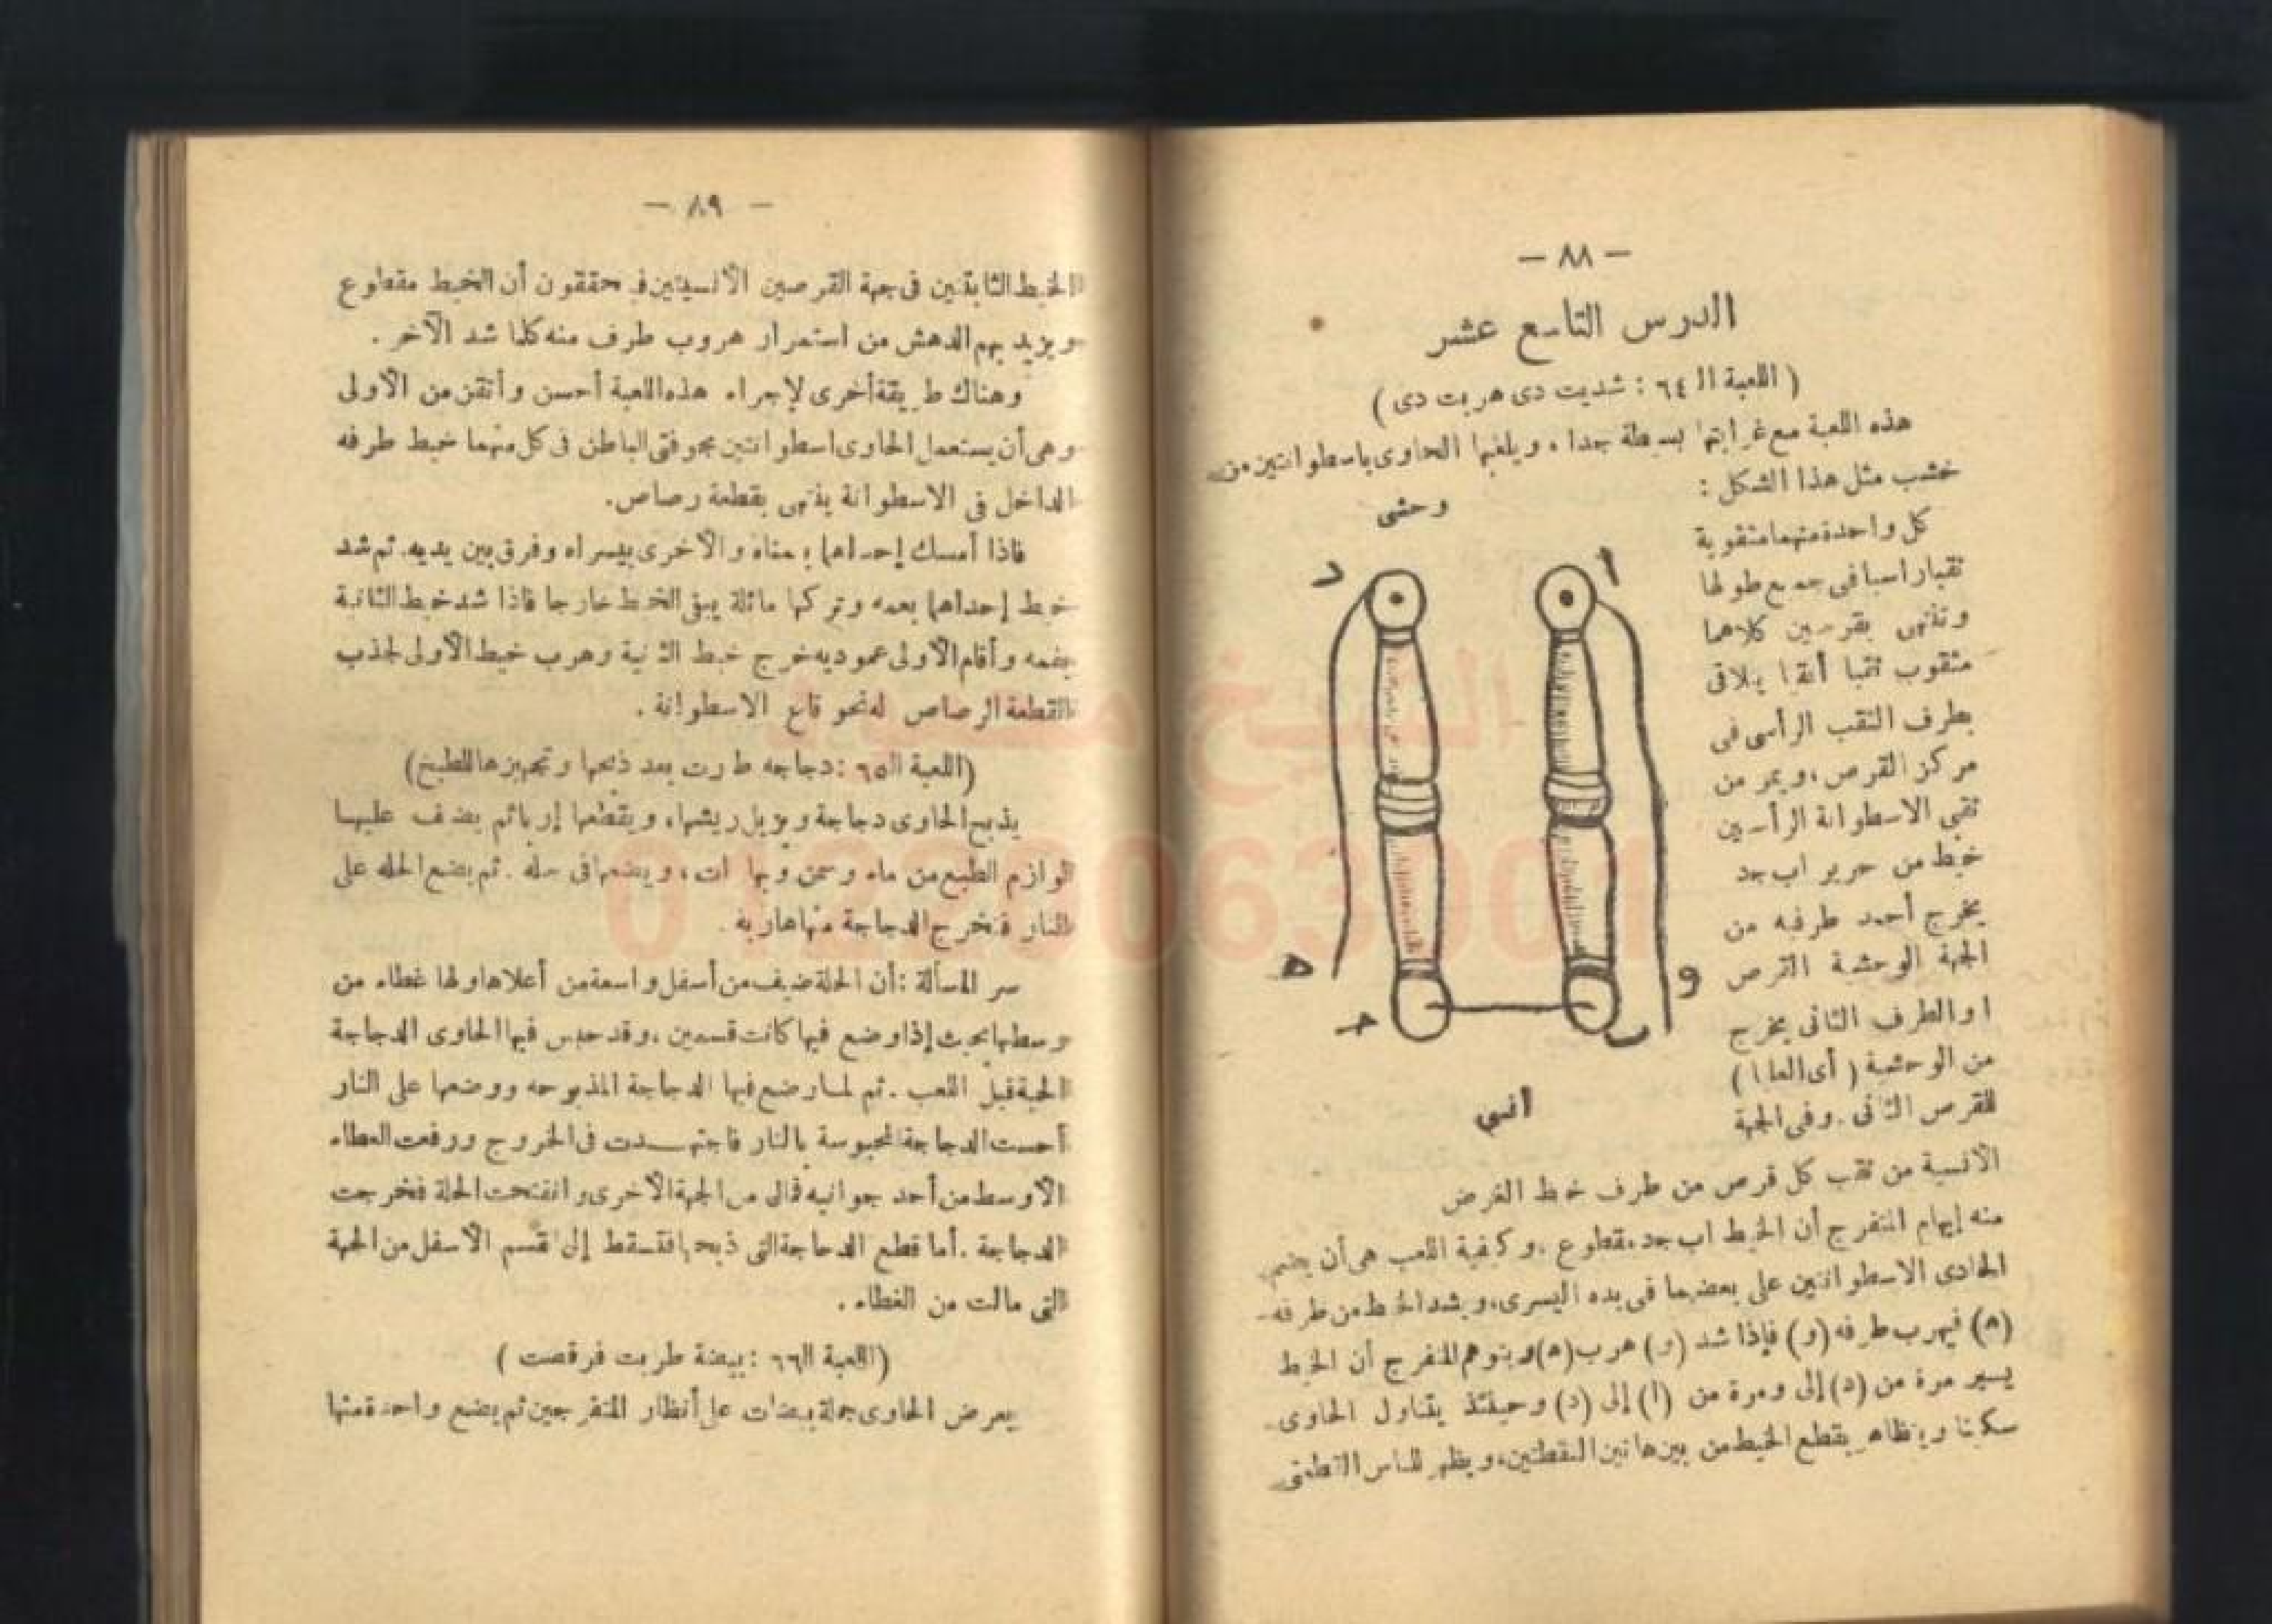 — ٨٨ —
الدرس التاسع عشر
( اللعبة الـ ٦٤ : شديت دى هربت دى )
هذه اللعبة مع غرابتها بسيطة جدا ، ويلعبها الحاوى باسطوانتين من
خشب مثل هذا الشكل :
وحشى
كل واحدة منهما مثقوبة
ثقبا رأسيا فى جميع طولها
وتنتهى بقرصين كلاهما
مثقوب ثقبا أفقيا يلاقى
بطرف الثقب الرأسى فى
مركز القرص ، ويمر من
ثقبى الاسطوانة الرأسيين
خيط من حرير اب جد
يخرج أحمد طرفيه من
الجهة الوحشية القرص
ا والطرف الثانى يخرج
من الوحشية ( أى العليا )
للقرص الثانى . وفى الجهة
د
ا
ه
و
ج
ب
أنسى
الأنسية من ثقب كل قرص من طرف خيط الغرض
منه إيهام المتفرج أن الخيط اب جد مقطوع . وكيفية اللعب هى أن يضم
الحاوى الاسطوانتين على بعضهما فى يده اليسرى ، ويشد الخيط من طرفه
(ه) فيهرب طرفه (و) فإذا شد (و) هرب (ه) ويتوهم المتفرج أن الخيط
يسير مرة من (د) إلى ومرة من (ا) إلى (د) وحينئذ يتناول الحاوى
سكينا ويتظاهر بقطع الخيط من بين هاتين النقطتين ، ويظهر للناس القطعتى
— ٨٩ —
الخيط الثابتتين فى جهة القرصين الأنسيتين فيحققون أن الخيط مقطوع
ويزيد بهم الدهش من استمرار هروب طرف منه كلما شد الآخر .
وهناك طريقة أخرى لإجراء هذه اللعبة أحسن وأتقن من الأولى
وهى أن يستعمل الحاوى اسطوانتين مجوفتى الباطن فى كل منهما خيط طرفه
الداخل فى الاسطوانة ينتهى بقطعة رصاص .
فاذا أمسك إحداهما بيمناه والأخرى بيسراه وفرق بين يديه . ثم شد
خيط إحداهما بعمه وتركها مائلة يبقى الخيط خارجا فاذا شد خيط الثانية
بفمه وأقام الأولى عموديه خرج خيط الثانية وهرب خيط الأولى لجذب
القطعة الرصاص له نحو قاع الاسطوانة .
(اللعبة الـ ٦٥ : دجاجه طارت بعد ذبحها وتجهيزها للطبخ)
يذبح الحاوى دجاجة ويزيل ريشها ، ويقطعها إربا ثم يضيف عليها
لوازم الطبخ من ماء وسمن وبهارات ، ويضعها فى حله . ثم يضع الحله على
النار فتخرج الدجاجة منها هاربة .
سر المسألة : أن الحلة ضيقة من أسفل واسعة من أعلاها ولها غطاء من
وسطها بحيث إذا وضع فيها كانت قسمين ، وقد حبس فيها الحاوى الدجاجة
الحية قبل اللعب . ثم لما وضع فيها الدجاجة المذبوحه ووضعها على النار
أحست الدجاجة المحبوسة بالنار فاجتهـــدت فى الخروج ورفعت الغطاء
الأوسط من أحد جوانبه فمال من الجهة الأخرى وانفتحت الحلة فخرجت
الدجاجة . أما قطع الدجاجة التى ذبحها فتسقط إلى القسم الأسفل من الجهة
التى مالت من الغطاء .
( اللعبة الـ ٦٦ : بيضة طربت فرقصت )
يعرض الحاوى جملة بيضات على أنظار المتفرجين ثم يضع واحدة منها
الشيخ